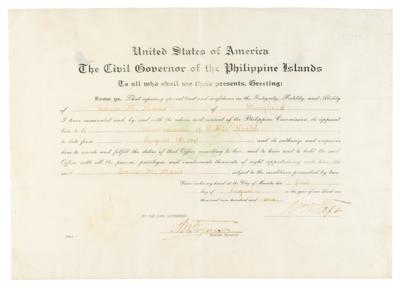 United States of America
The Civil Governor of the Philippine Islands
To all who shall see these presents, Greeting:
Know ye, That reposing special trust and confidence in the Integrity, Fidelity, and Ability
of Louis M. of Maryland
I have nominated and, by and with the advice and consent of the Philippine Commission, do appoint
him to be Commissioner of Public Health
to date from August 1901 and do authorize and empower
him to execute and fulfill the duties of that Office according to law, and to have and to hold the said
Office, with all the powers, privileges, and emoluments thereunto of right appertaining unto him, the
said Louis M. subject to the conditions prescribed by law.
Given under my hand at the City of Manila this first
day of August in the year of our Lord one
thousand nine hundred and
Wm H Taft
BY THE CIVIL GOVERNOR:
A W Fergusson
Executive Secretary.